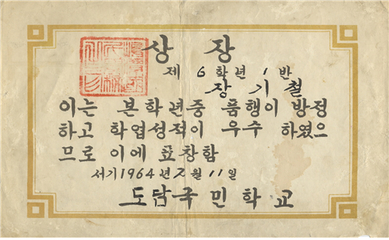 상장
제 6 학년 1 반
장기철
이는 본학년중 품행이 방정
하고 학업성적이 우수 하였으
므로 이에 표창함
서기1964년 2월 11일
도담국민학교